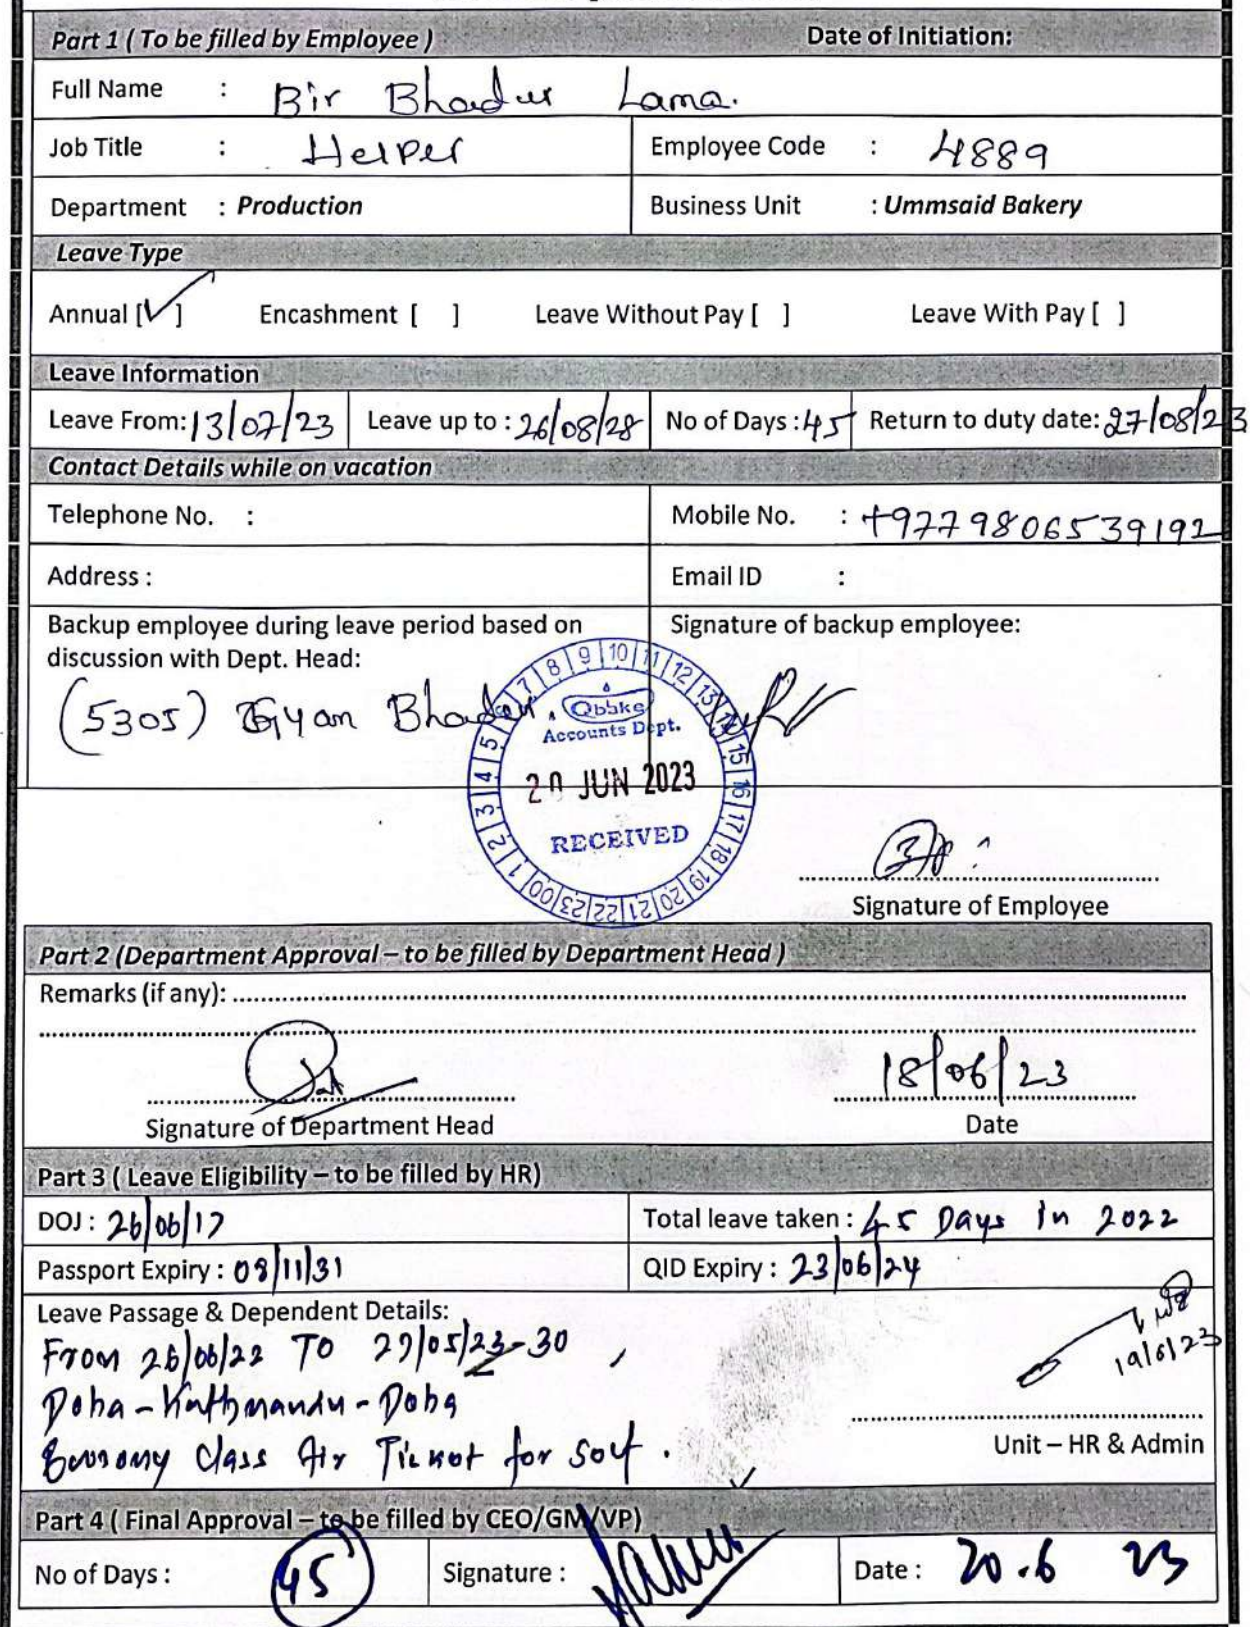 Part 1 ( To be filled by Employee ) Date of Initiation:
Full Name : Bir Bhadur Lama.
Job Title : Helper Employee Code : 4889
Department : Production Business Unit : Ummsaid Bakery
Leave Type
Annual [✓] Encashment [ ] Leave Without Pay [ ] Leave With Pay [ ]
Leave Information
Leave From: 13/07/23 Leave up to : 26/08/28 No of Days : 45 Return to duty date: 27/08/23
Contact Details while on vacation
Telephone No. : Mobile No. : +9779806539192
Address : Email ID :
Backup employee during leave period based on Signature of backup employee:
discussion with Dept. Head:
(5305) Gyan Bhadur
7 8 9 10 11 12 13 14 15 16 17 18 19 20 21 22 23 00 1 2 3 4 5 6
Qbake
Accounts Dept.
20 JUN 2023
RECEIVED
Signature of Employee
Part 2 (Department Approval – to be filled by Department Head )
Remarks (if any):
18/06/23
Signature of Department Head Date
Part 3 ( Leave Eligibility – to be filled by HR)
DOJ : 26/06/17 Total leave taken : 45 Days in 2022
Passport Expiry : 08/11/31 QID Expiry : 23/06/24
Leave Passage & Dependent Details:
From 26/06/22 To 29/05/23-30 ,
19/6/23
Doha-Kathmandu-Doha
Economy Class Air Ticket for self .
Unit – HR & Admin
Part 4 ( Final Approval – to be filled by CEO/GM/VP)
No of Days : 45 Signature : Date : 20.6 23